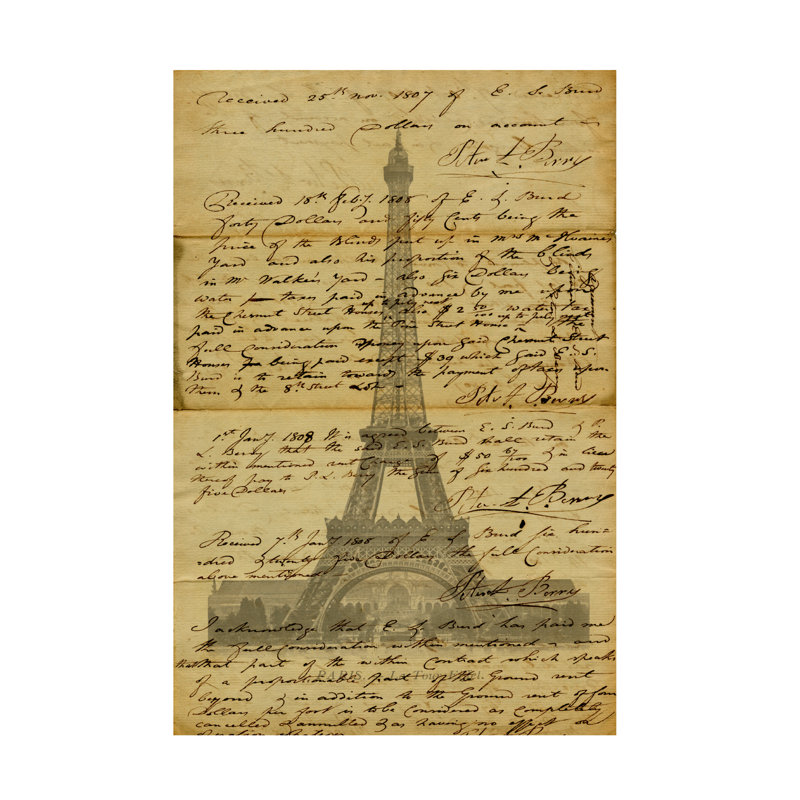 Received 25th Nov. 1807 of E. S. Burd
three hundred Dollars on account
Peter L. Berry
Received 18th Feb.y. 1808 of E. S. Burd
forty Dollars and fifty Cents being the
price of the Blinds put up in Mrs Mc Ilvaines
Yard and also his proportion of the blinds
in Mr Walker's Yard - also six Dollars being
water taxes paid in advance by me upon
up to July next
the Chesnut Street Houses, also $ 2 50/100 water tax
up to July next
paid in advance upon the Street House - the
full Consideration money upon said Chesnut Street
Houses being paid except $ 39 which said E. S.
Burd is to retain towards the payment of taxes upon
them & the 8th Street Lot -
Peter L. Berry
1st Jany. 1808 It is agreed between E. S. Burd & P.
L. Berry that the said E. S. Burd shall retain the
within mentioned rent Charge of $ 50 67/100 & in lieu
thereof pay to P. L. Berry the sum of six hundred and twenty
five Dollars -
Peter L. Berry
Received 7th Jany 1808 of E. S. Burd six hun-
dred & twenty five Dollars the full Consideration
above mentioned
Peter L. Berry
I acknowledge that E. S. Burd has paid me
the full Consideration within mentioned - and
that that part of the within Contract which speaks
PARIS. - La Tour Eiffel.
of a proportionable part of the Ground rent
beyond & in addition to the Ground rent of four
Dollars per foot is to be considered as completely
cancelled & annulled & as having no effect or
operation whatever